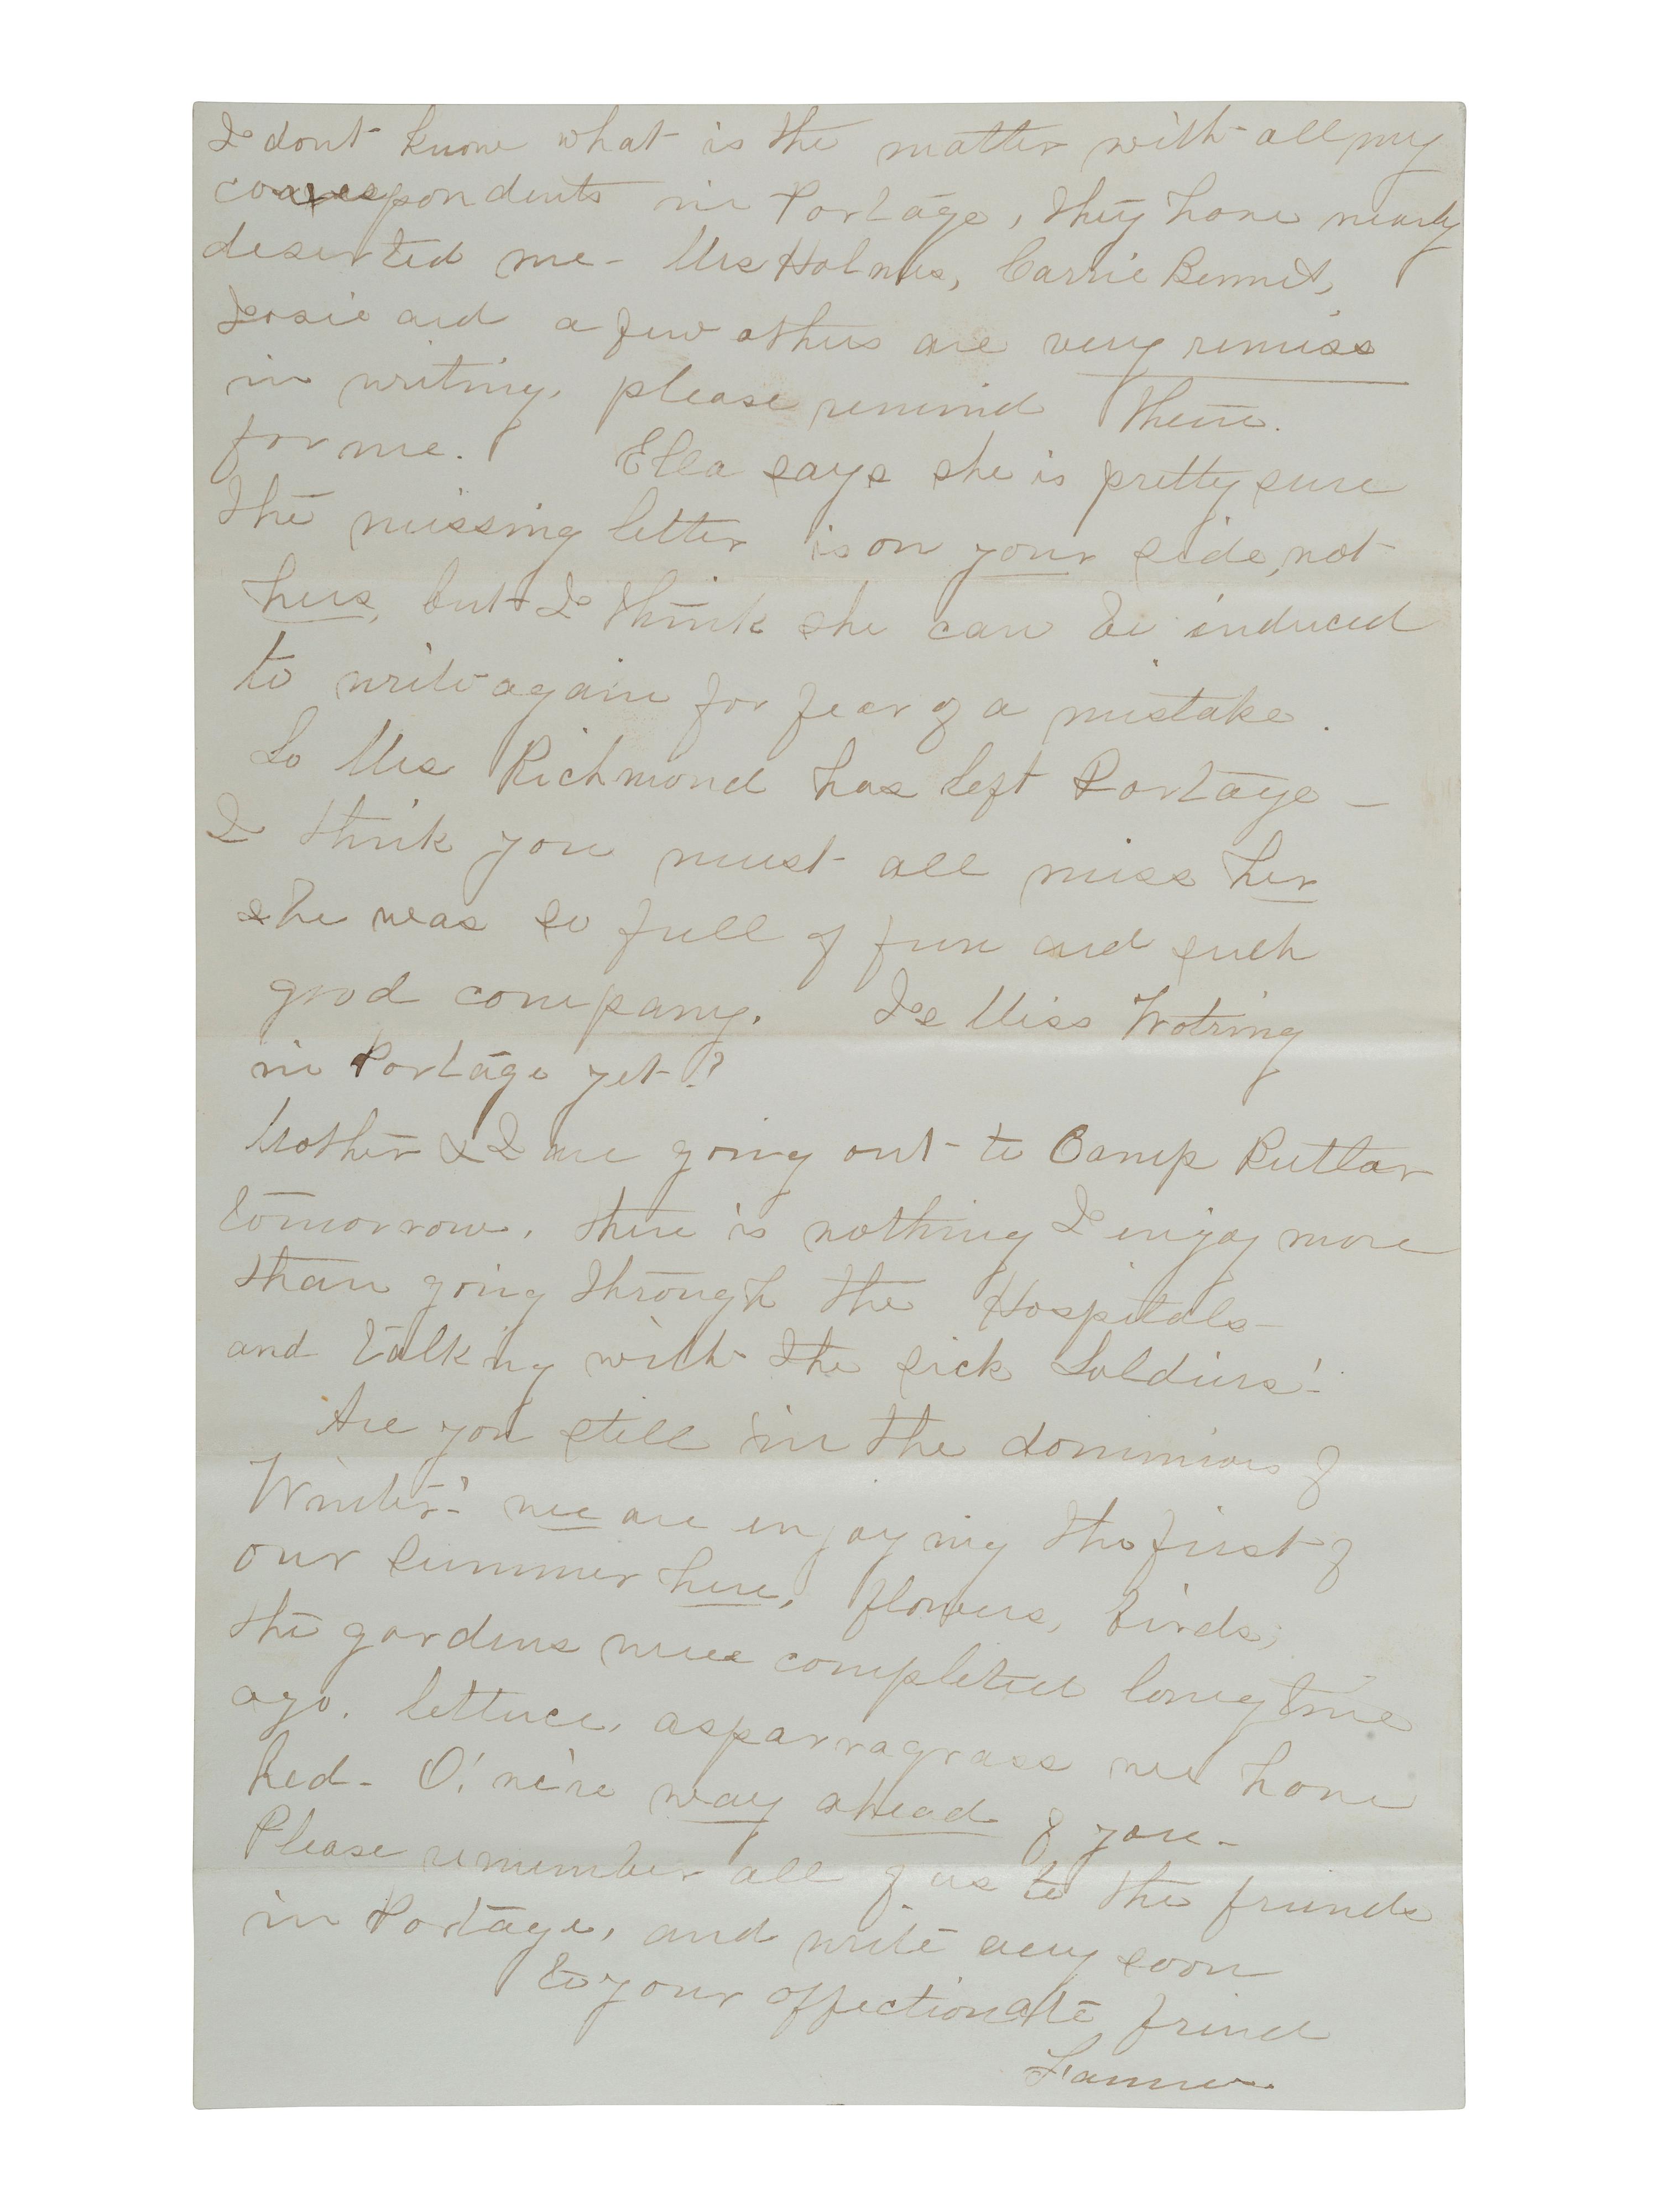 I dont know what is the matter with all my
correspondents in Portage, they have nearly
deserted me - Mrs Holmes, Carrie Bennet,
Josie and a few others are very remiss
in writing, please remind them.
for me. Ella says she is pretty sure
the missing letter is on your side, not
hers, but I think she can be induced
to write again for fear of a mistake.
So Mrs Richmond has left Portage -
I think you must all miss her
she was so full of fun and such
good company. Is Miss Wotring
in Portage yet?
Mother & I are going out to Camp Butlar
tomorrow, there is nothing I enjoy more
than going through the Hospitals
and talking with the sick Soldiers!
Are you still in the dominions of
Winter? we are enjoying the first of
our summer here, flowers, birds,
the gardens were completed long time
ago. lettuce, asparragrass we have
had - O! we're way ahead of you -
Please remember all of us to the friends
in Portage, and write very soon
to your affectionate friend
Fannie